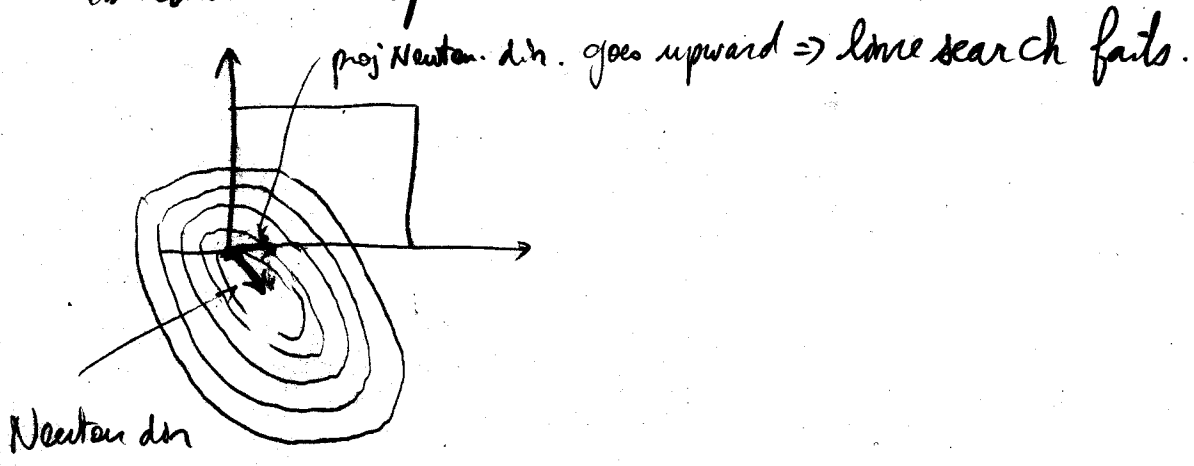 proj Newton. dir. goes upward => line search fails.
Newton dir